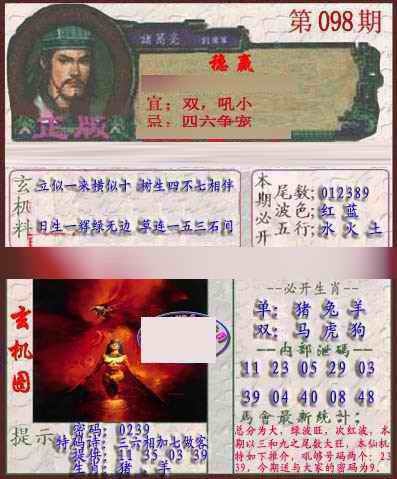 第098期
諸葛亮
稳赢
宜：双，吼小
忌：四六争宠
正版
玄机料
立似一来横似十 树生四不七相伴
日生一辉绿无边 草连一五三石间
本期必开
尾数：012389
波色：红 蓝
五行：水 火 土
玄机图
提示
密码：0239
特码诗：三六相加七做客
提供：11 35 03 39
生肖：猪、羊
--必开生肖--
单：猪 兔 羊
双：马 虎 狗
--内部泄码--
11 23 05 29 03
39 04 40 08 48
馬會最新统计：
总分为大，绿波旺，次红波，本
期以三和九之尾数大旺，本仙机
特如下推介，吼够号码两个：23
39，今期送与大家的密码为9。